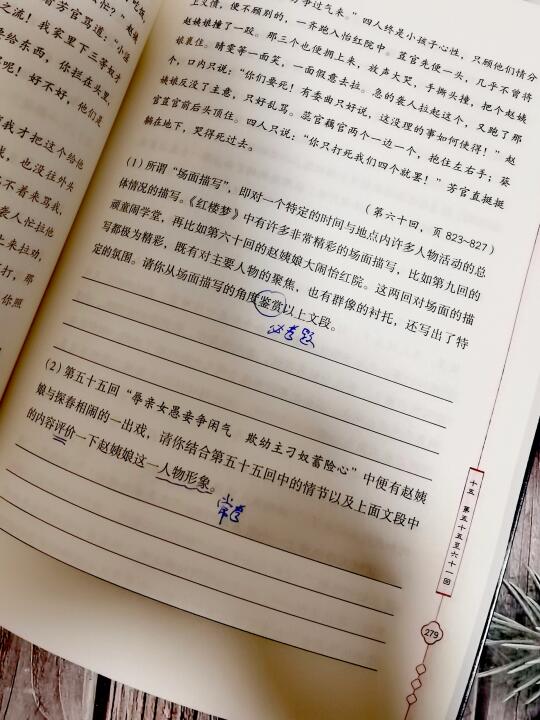 忙？”
官骂道：“小
之流！我家里下三等奴才
要给东西，你拦在头里，
罢呢！好不好，他们是
我才把这个给他
也没往外头
不着来骂我，
袭人忙拉他
上来拉劝，
打，那
你照
过气来。”四人终是小孩子心性，只顾他们情分
上义愤，便不顾别的，一齐跑入怡红院中。豆官先便一头，几乎不曾将
赵姨娘撞了一跤。那三个也便拥上来，放声大哭，手撕头撞，把个赵姨
娘裹住。晴雯等一面笑，一面假意去拉。急的袭人拉起这个，又跑了那
个，口内只说：“你们要死！有委曲只好说，这没理的事如何使得！”赵
姨娘反没了主意，只好乱骂。蕊官藕官两个一边一个，抱住左右手；葵
官豆官前后头顶住。四人只说：“你只打死我们四个就罢！”芳官直挺挺
躺在地下，哭得死过去。
（第六十回，页823~827）
（1）所谓“场面描写”，即对一个特定的时间与地点内许多人物活动的总
体情况的描写。《红楼梦》中有许多非常精彩的场面描写，比如第九回的
顽童闹学堂，再比如第六十回的赵姨娘大闹怡红院。这两回对场面的描
写都极为精彩，既有对主要人物的聚焦，也有群像的衬托，还写出了特
定的氛围。请你从场面描写的角度鉴赏以上文段。
必考题
（2）第五十五回“辱亲女愚妾争闲气 欺幼主刁奴蓄险心”中便有赵姨
娘与探春相闹的一出戏，请你结合第五十五回中的情节以及上面文段中
的内容评价一下赵姨娘这一人物形象。
常考
十五 第五十五至六十一回
279